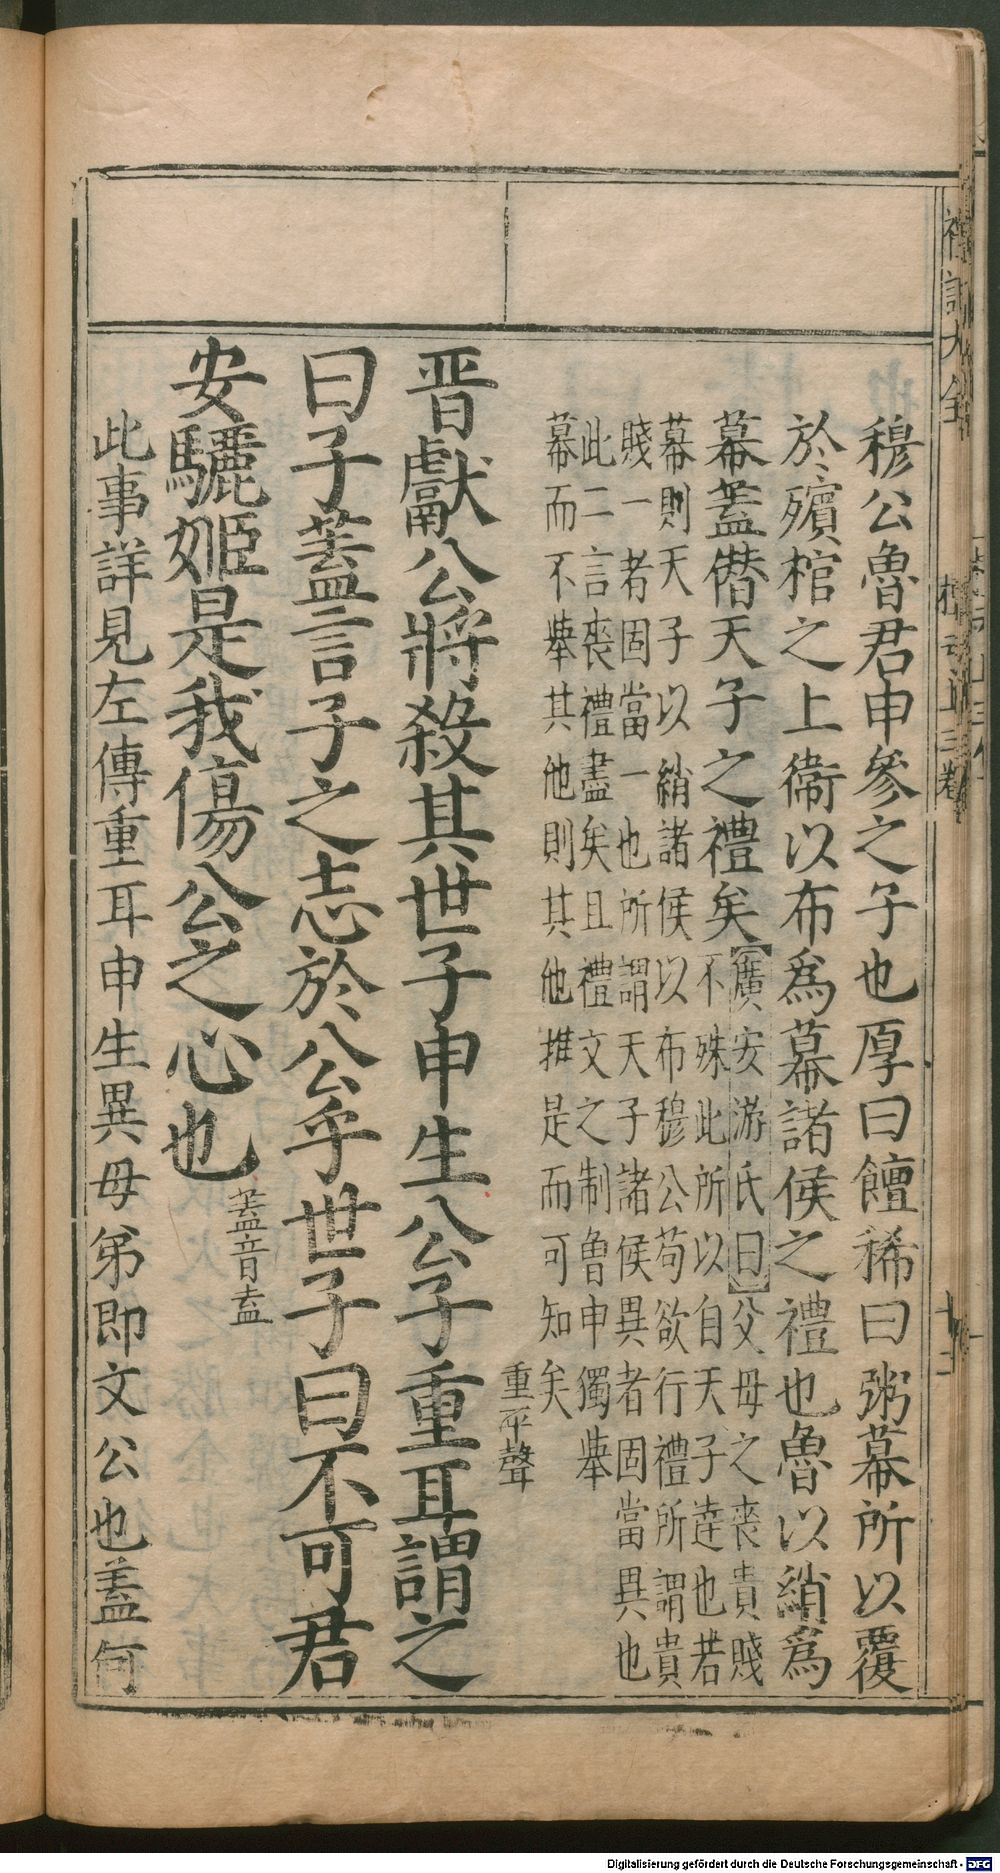 穆公魯君申參之子也厚曰饘稀曰粥幕所以覆
於殯棺之上衛以布為幕諸侯之禮也魯以綃為
幕蓋僭天子之禮矣
廣安游氏曰父母之喪貴賤
不殊此所以自天子逹也若
幕則天子以綃諸侯以布穆公苟欲行禮所謂貴
賤一者固當一也所謂天子諸侯異者固當異也
此二言喪禮盡矣且禮文之制魯申獨舉
幕而不舉其他則其他推是而可知矣
晋獻公將殺其世子申生公子重耳謂之
重平聲
曰子蓋言子之志於公乎世子曰不可君
安驪姬是我傷公之心也
蓋音盍
此事詳見左傳重耳申生異母弟即文公也蓋何
禮記大全
Digitalisierung gefördert durch die Deutsche Forschungsgemeinschaft - DFG